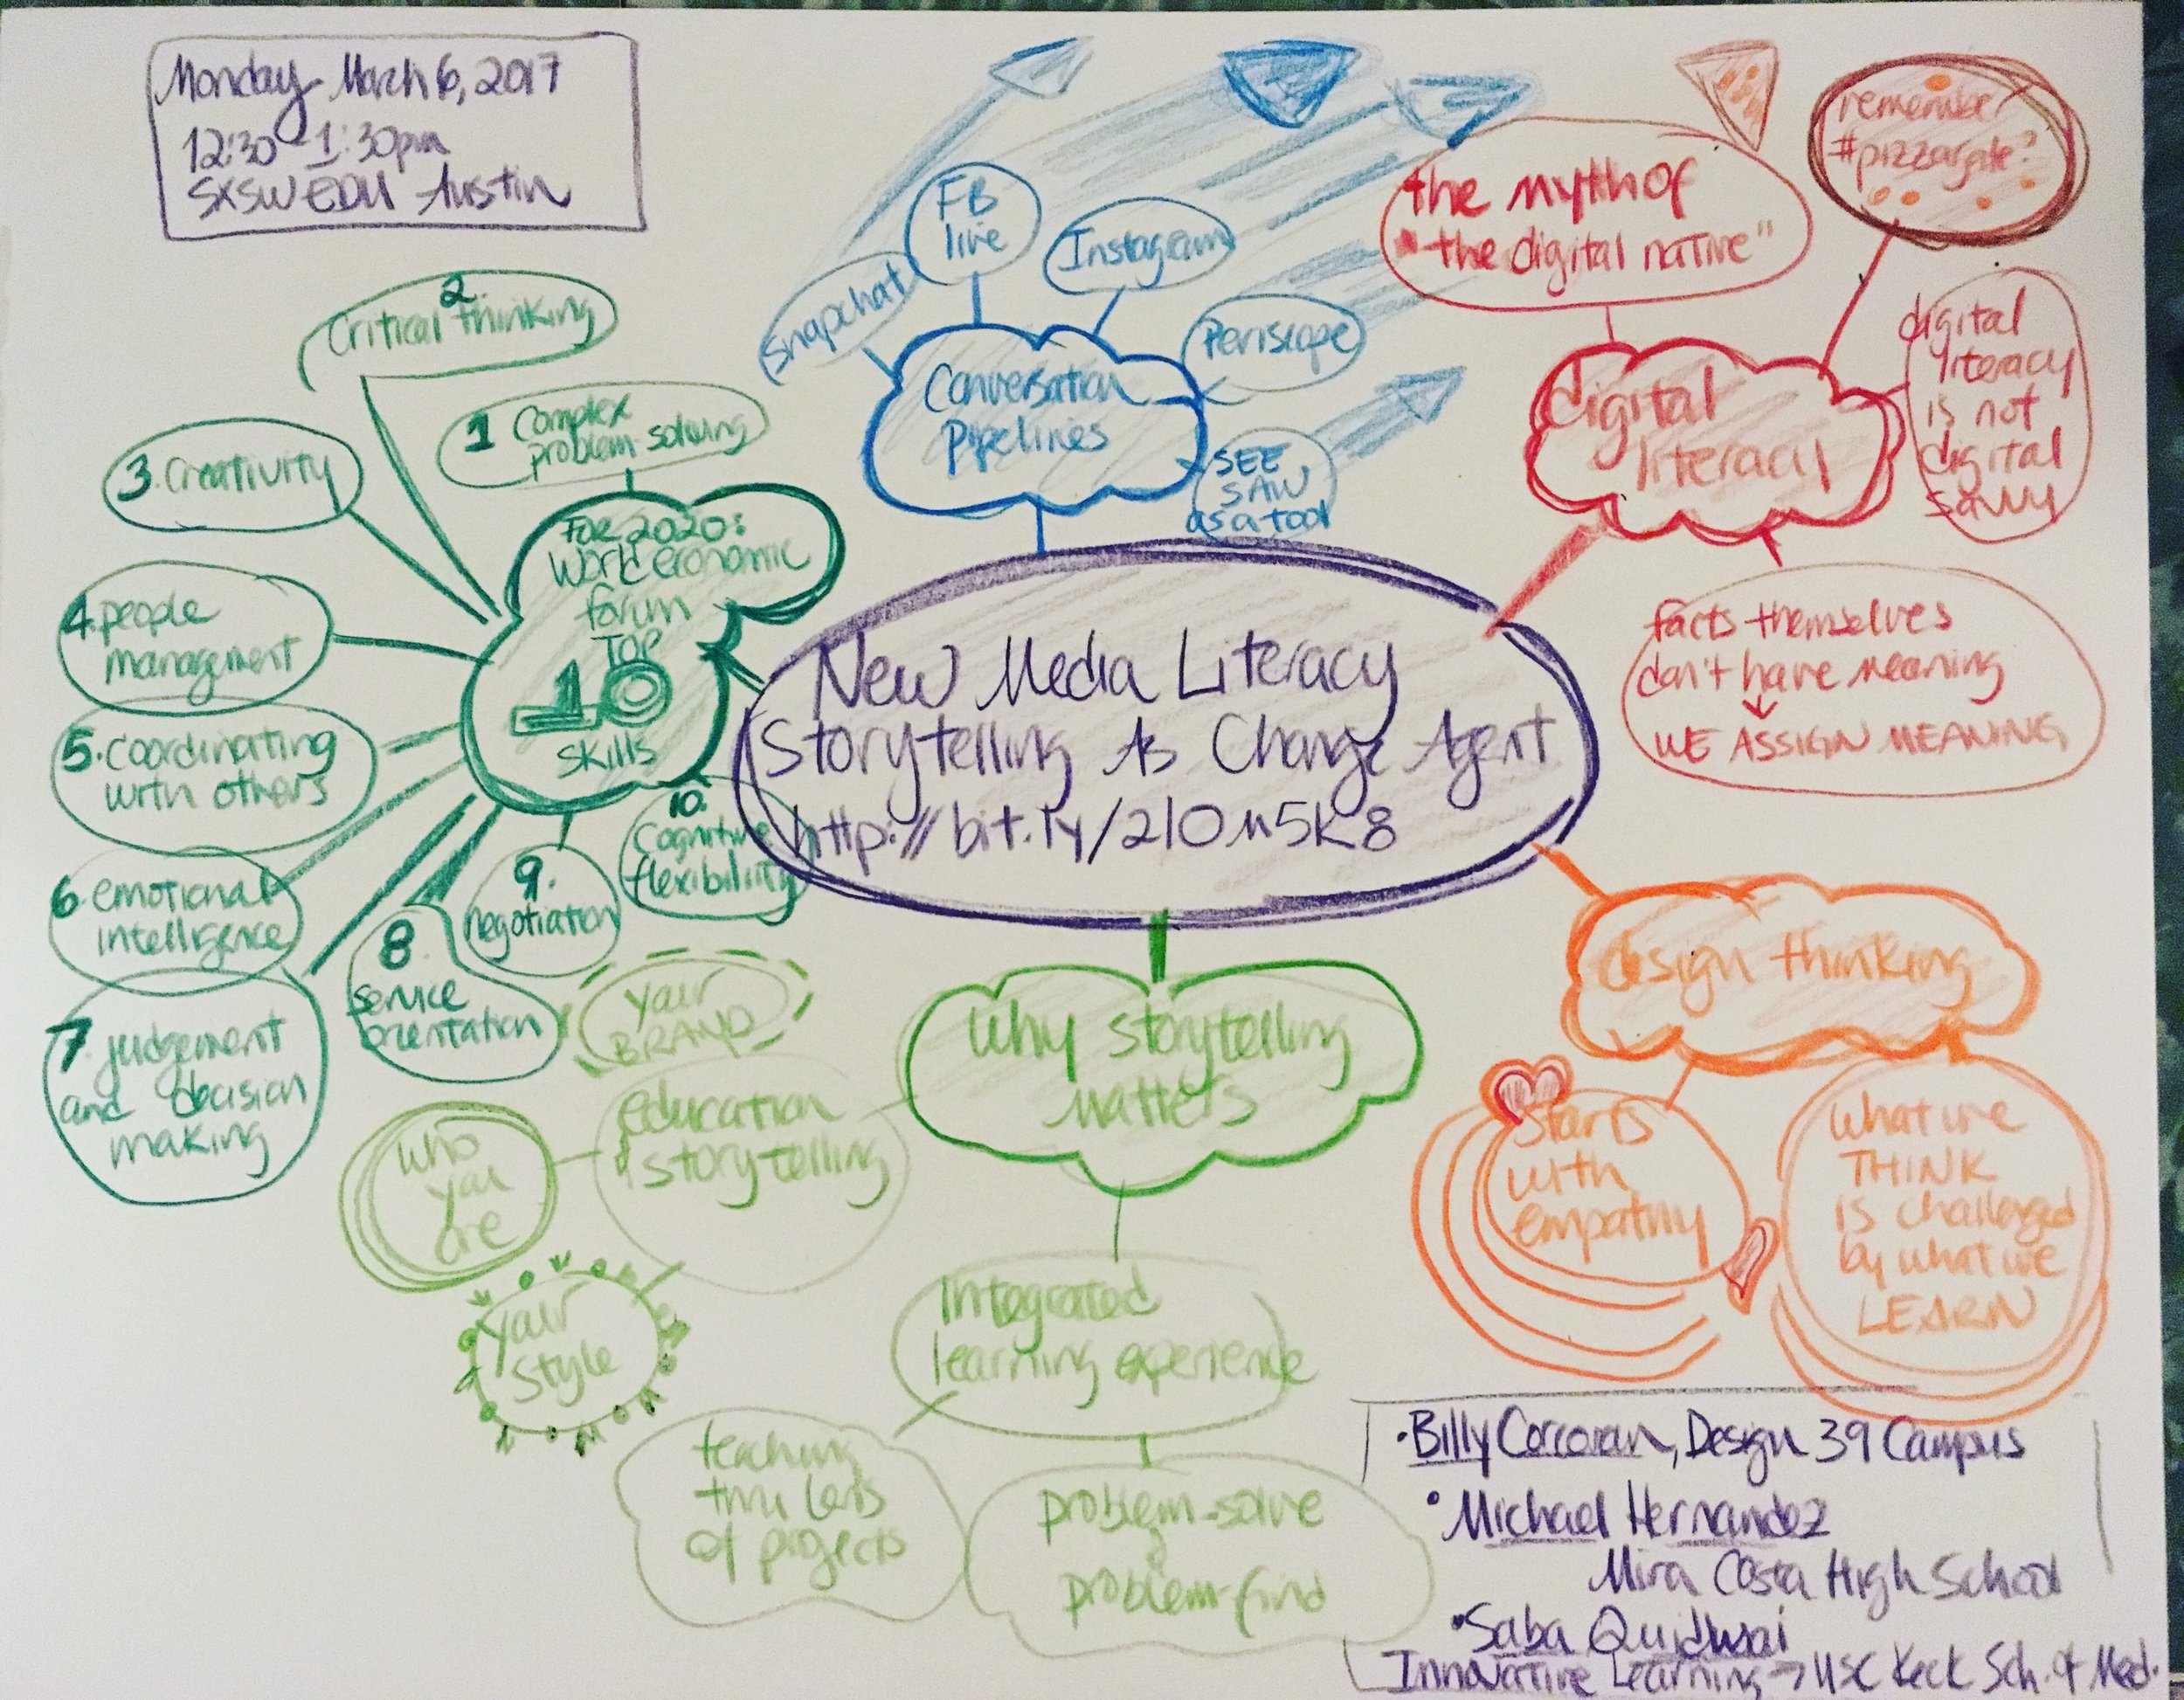 Monday March 6, 2017
12:30-1:30pm
SXSWEDU Austin
New Media Literacy
Storytelling As Change Agent
http://bit.ly/
FOR 2020:
World economic
forum
TOP
10
skills
1 Complex
problem-solving
2.
Critical thinking
3. Creativity
4. people
management
5. coordinating
with others
6. emotional
intelligence
7. judgement
and decision
making
8.
service
orientation
9.
negotiation
10.
Cognitive
flexibility
Conversation
Pipelines
Snapchat
FB
live
Instagram
Periscope
SEE
SAW
as a tool
digital
literacy
the myth of
"the digital native"
remember
#pizzagate?
digital
literacy
is not
digital
savvy
facts themselves
don't have meaning
WE ASSIGN MEANING
design thinking
Starts
with
empathy
what we
THINK
is challenged
by what we
LEARN
why storytelling
matters
education
storytelling
your
BRAND
who
you
are
your
style
Integrated
learning experience
teaching
thru lens
of projects
problem-solve
problem-find
• Billy Corcoran, Design 39 Campus
• Michael Hernandez
Mira Costa High School
• Saba Quidwai
Innovative Learning → USC Keck Sch. of Med.